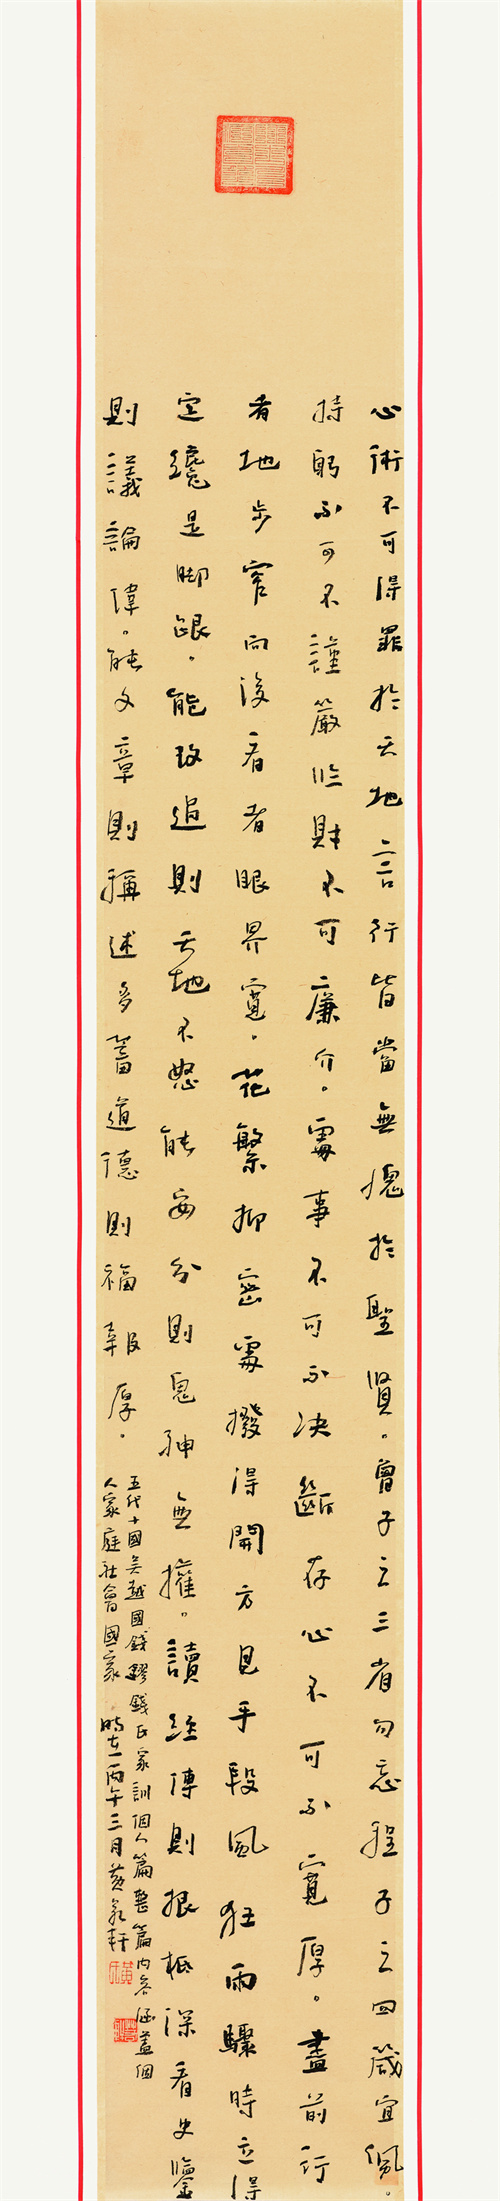 心術不可得罪於天地言行皆當無愧於聖賢。曾子之三省勿忘程子之四箴宜佩。
持躬不可不謹嚴臨財不可廉介。處事不可不決斷存心不可不寬厚。盡前行
者地步窄向後看者眼界寬。花繁柳密處撥得開方見手段風狂雨驟時立得
定纔是脚跟。能改過則天地不怒能安分則鬼神無權。讀經傳則根柢深看史鑒
則議論偉。能文章則稱述多蓄道德則福報厚。
五代十國吳越國錢鏐錢氏家訓個人篇整篇內容涵蓋個
人家庭社會國家 時在丙午三月黃軒